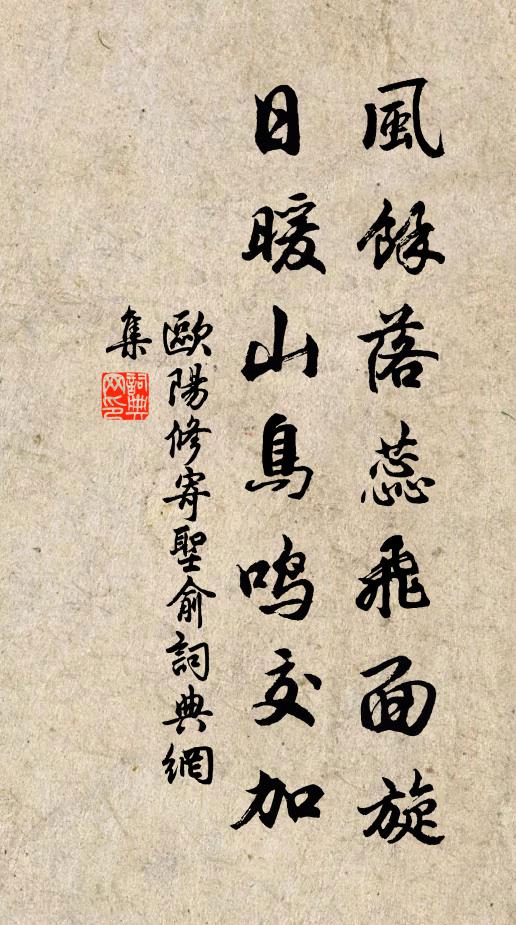 風餘落蕊飛面旋
日暖山鳥鳴交加
歐陽修寄聖俞詞典網
集
詞典
网印